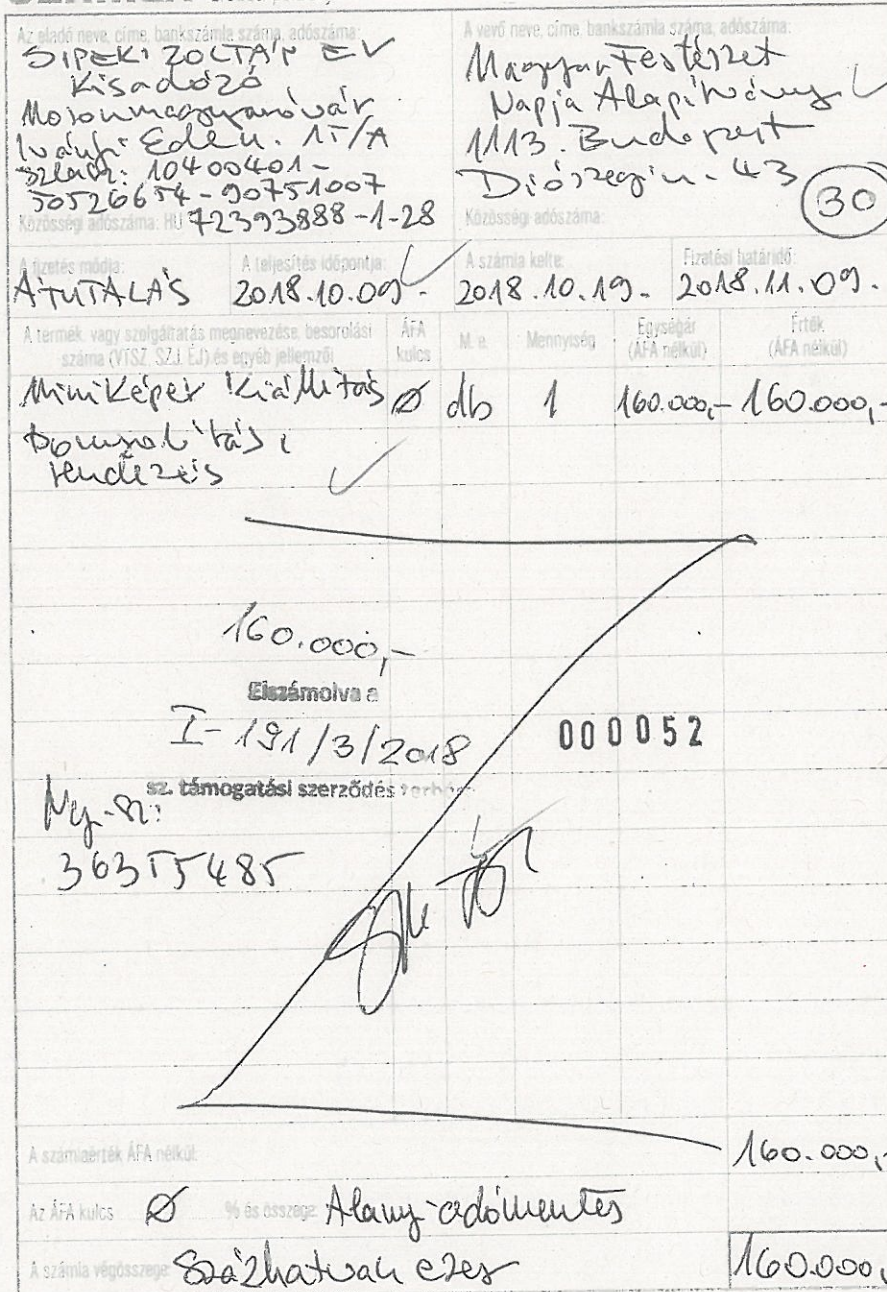 Az eladó neve, címe, bankszámla száma, adószáma:
SIPEKI ZOLTÁN EV
Kisadózó
Mosonmagyaróvár
Iványi Ede u. 15/A
szlasz: 10400401-
50526654-90751007
Közösségi adószáma: HU 72393888-1-28
A vevő neve, címe, bankszámla száma, adószáma:
Magyar Festészet
Napja Alapítvány
1113. Budapest
Diószegi u. 43
30
Közösségi adószáma:
A fizetés módja:
ÁTUTALÁS
A teljesítés időpontja:
2018.10.09.
A számla kelte:
2018.10.19.
Fizetési határidő:
2018.11.09.
A termék vagy szolgáltatás megnevezése, besorolási
száma (VTSZ, SZJ, ÉJ) és egyéb jellemzői
ÁFA
kulcs
M. e.
Mennyiség
Egységár
(ÁFA nélkül)
Érték
(ÁFA nélkül)
Mini Képek Kiállítás Ø db 1 160.000,- 160.000,-
rendezés
160.000,-
Elszámolva a
I-191/3/2018
000052
sz. támogatási szerződés terhére
Ny-sz:
36355485
A számlaérték ÁFA nélkül:
160.000,-
Az ÁFA kulcs Ø % és összege: Alanyi adómentes
A számla végösszege: Százhatvan ezer 160.000,